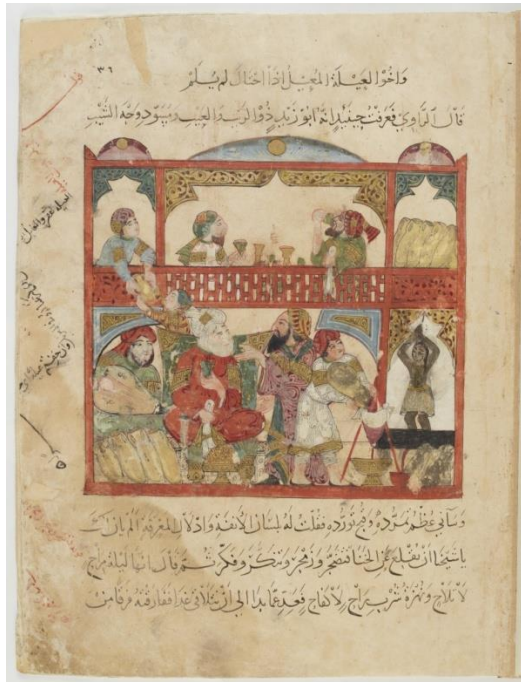 ٣٦
واخوا العيلة المعيل اذا احتال لم يلم
قال الراوي فعرفت حينئذ انه ابو زيد ذو الريب والعيب ومسود وجه الشيب
وساني عظم تمرده وقبح تورده فقلت له بلسان الانفة وادلال المعرفة الم يان لك
يا شيخنا ان تقلع عن الخنا فتضجر وزمجر وتنكر وفكر ثم قال انها ليلة مراح
لا تلاح ونهزة شرب راح لا كفاح فعد عما بدا الى ان نتلاقى غدا ففارقته فرقا من